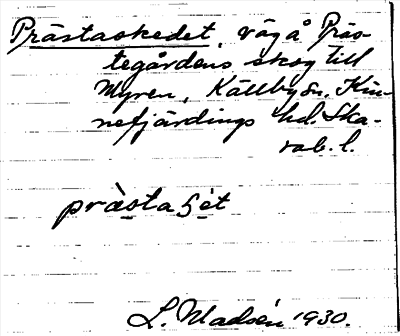 Prästaskedet, väg å Präs-
tegårdens skog till
Myren, Källby sn, Kin-
nefjärdings hd. Ska-
rab. l.
prästaʂét
L. Madsén 1930.